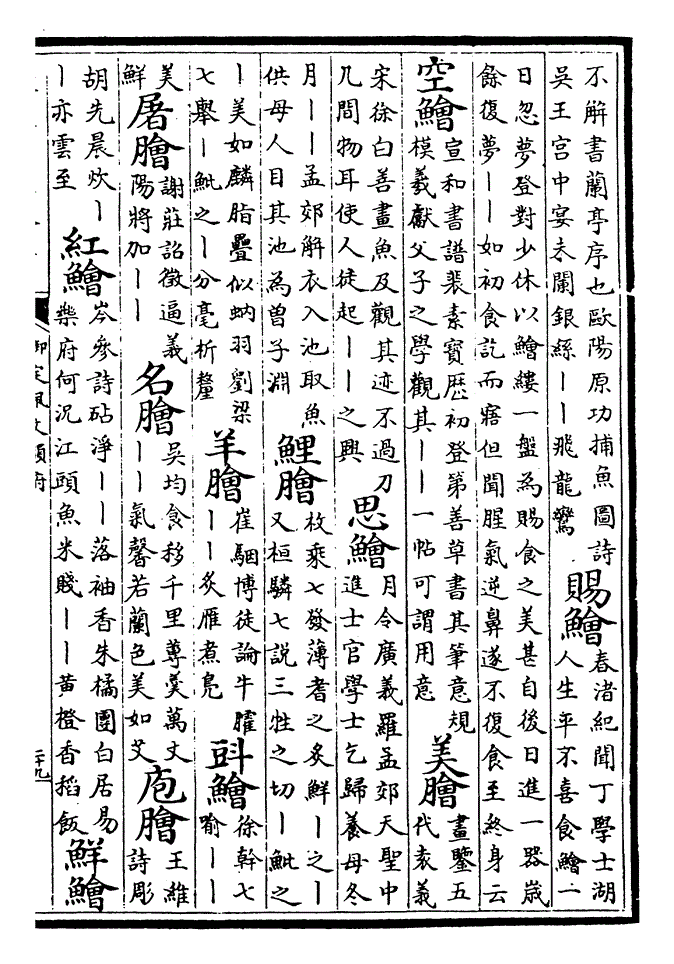 不解書蘭亭序也歐陽原功捕魚圖詩
吳王宮中宴未闌銀絲丨丨飛龍鸞
賜鱠
春渚紀聞丁學士湖
人生平不喜食鱠一
日忽夢登對少休以鱠縷一盤為賜食之美甚自後日進一器歲
餘復夢丨丨如初食訖而寤但聞腥氣逆鼻遂不復食至終身云
空鱠
宣和書譜裴素寶歷初登第善草書其筆意規
模羲獻父子之學觀其丨丨一帖可謂用意
美膾
畫鑒五
代袁義
宋徐白善畫魚及觀其迹不過刀
几間物耳使人徒起丨丨之興
思鱠
月令廣義羅孟郊天聖中
進士官學士乞歸養母冬
月丨丨孟郊解衣入池取魚
供母人目其池為曾子淵
鯉膾
枚乘七發薄耆之炙鮮丨之丨
又桓驎七説三牲之切丨魮之
丨美如麟脂疊似蚋羽劉梁
七舉丨魮之丨分毫析釐
羊膾
崔駰博徒論牛臛
丨丨炙雁煮鳧
㪷鱠
徐幹七
喻丨丨
美
鮮
屠膾
謝莊詔徵逼義
陽將加丨丨
名膾
吳均食移千里蓴羹萬丈
丨丨氣馨若蘭色美如艾
庖膾
王維
詩彫
胡先晨炊丨
丨亦雲至
紅鱠
岑參詩砧淨丨丨落袖香朱橘團白居易
樂府何況江頭魚米賤丨丨黃橙香稻飯
鮮鱠
御定佩文韻府
二十九